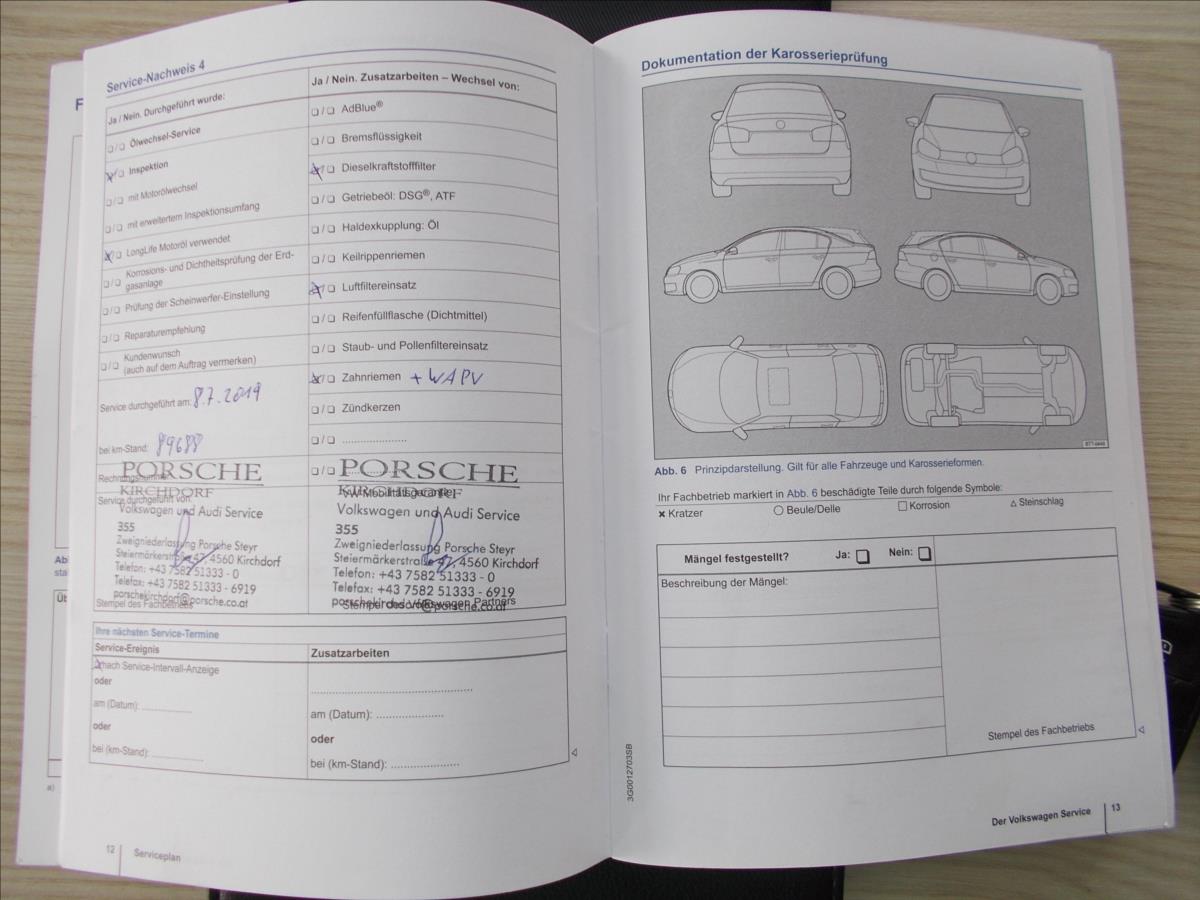 Service-Nachweis 4
Ja / Nein. Durchgeführt wurde:
❑/❑ Ölwechsel-Service
❑/❑ Inspektion
❑/❑ mit Motorölwechsel
❑/❑ mit erweitertem Inspektionsumfang
❑/❑ LongLife Motoröl verwendet
❑/❑ Korrosions- und Dichtheitsprüfung der Erd-
gasanlage
❑/❑ Prüfung der Scheinwerfer-Einstellung
❑/❑ Reparaturempfehlung
❑/❑ Kundenwunsch
(auch auf dem Auftrag vermerken)
Service durchgeführt am: 8.7.2019
bei km-Stand: 89688
PORSCHE
KIRCHDORF
Service durchgeführt von:
Volkswagen und Audi Service
355
Zweigniederlassung Porsche Steyr
Steiermärkerstraße 47, 4560 Kirchdorf
Telefon: +43 7582 51333 - 0
Telefax: +43 7582 51333 - 6919
porschekirchdorf@porsche.co.at
Stempel des Fachbetriebs
Ja / Nein. Zusatzarbeiten – Wechsel von:
❑/❑ AdBlue®
❑/❑ Bremsflüssigkeit
❑/❑ Dieselkraftstofffilter
❑/❑ Getriebeöl: DSG®, ATF
❑/❑ Haldexkupplung: Öl
❑/❑ Keilrippenriemen
❑/❑ Luftfiltereinsatz
❑/❑ Reifenfüllflasche (Dichtmittel)
❑/❑ Staub- und Pollenfiltereinsatz
❑/❑ Zahnriemen + WAPU
❑/❑ Zündkerzen
❑/❑ .....................
❑/❑ PORSCHE
KIRCHDORF
VW-Mobilitätsgarantie
Volkswagen und Audi Service
355
Zweigniederlassung Porsche Steyr
Steiermärkerstraße 47, 4560 Kirchdorf
Telefon: +43 7582 51333 - 0
Telefax: +43 7582 51333 - 6919
porschekirchdorf@porsche.co.at
Stempel des Volkswagen Partners
Ihre nächsten Service-Termine
Service-Ereignis
nach Service-Intervall-Anzeige
oder
am (Datum): .....................
oder
bei (km-Stand): .....................
Zusatzarbeiten
..................................................
am (Datum): .....................
oder
bei (km-Stand): .....................
12 Serviceplan
Dokumentation der Karosserieprüfung
Abb. 6 Prinzipdarstellung. Gilt für alle Fahrzeuge und Karosserieformen.
Ihr Fachbetrieb markiert in Abb. 6 beschädigte Teile durch folgende Symbole:
✖ Kratzer ○ Beule/Delle □ Korrosion △ Steinschlag
Mängel festgestellt? Ja: ❑ Nein: ❑
Beschreibung der Mängel:
Stempel des Fachbetriebs
3G0012703SB
Der Volkswagen Service 13